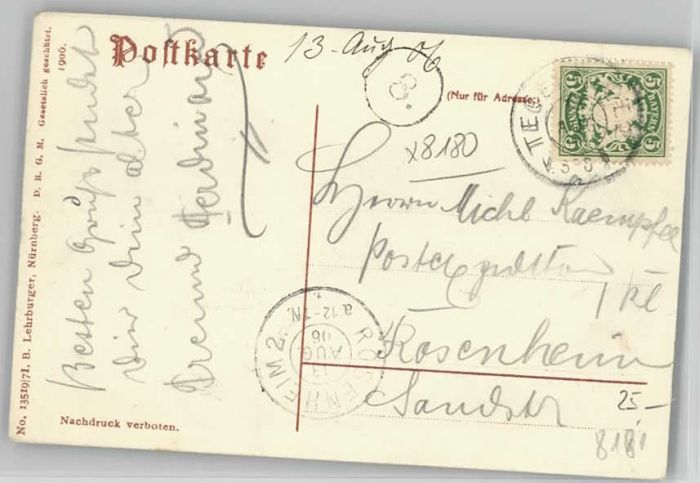 Postkarte
13. Aug 06
(Nur für Adresse.)
x8180
5 BAYERN 5
TEGE
Herrn Michl Kaempfel
Postexpeditor
I Kl
Rosenheim
Sandstr
25.-
8181
ROSENHEIM 2.
13 AUG 06
12-1 N.
Besten Gruß sendet
Dir Dein alter
Freund Ferdinand
Nachdruck verboten.
No. 13519/71. B. Lehrburger, Nürnberg. D. R. G. M. Gesetzlich geschützt.
1906.